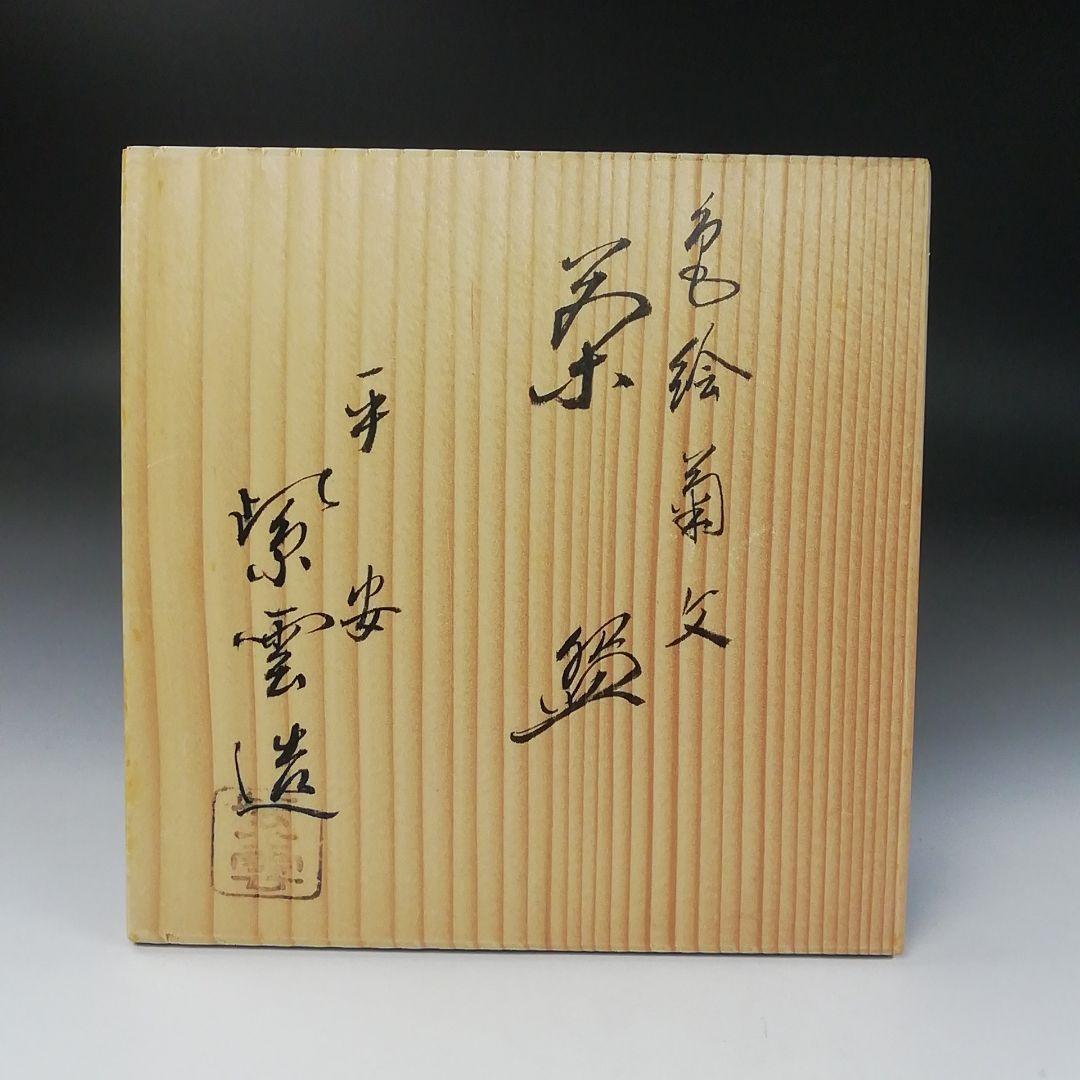 色絵菊文
茶盌
平安
紫雲造
紫雲